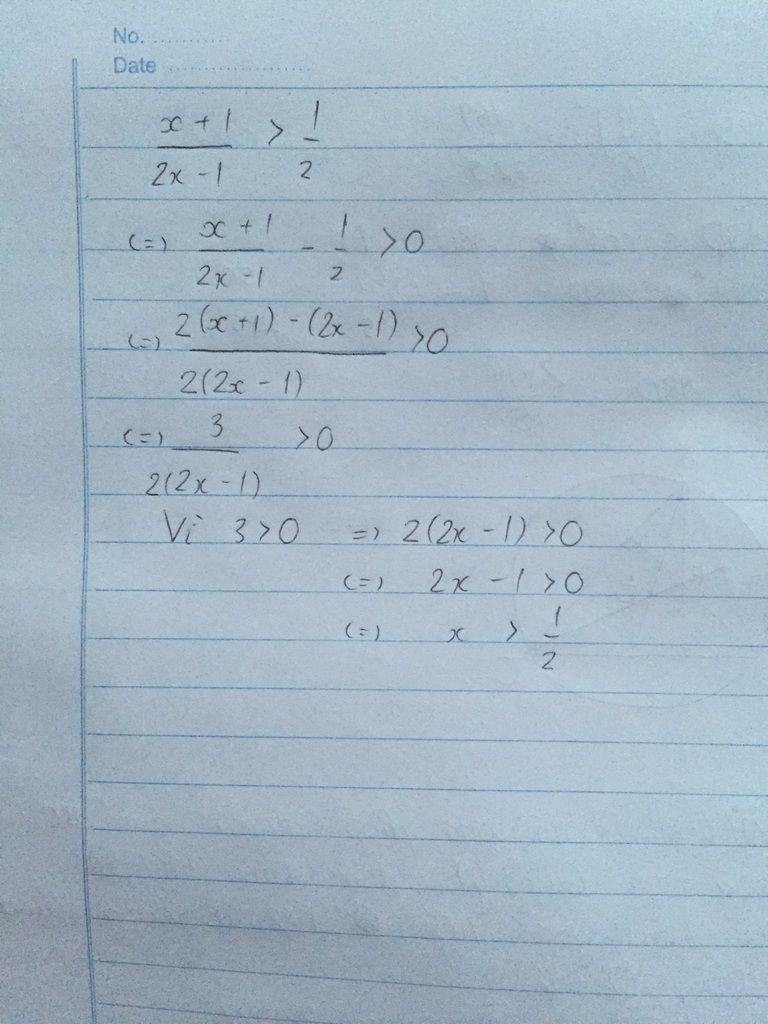 No. ..........
Date ....................
x + 1 / 2x - 1 > 1 / 2
(=) x + 1 / 2x - 1 - 1 / 2 > 0
(=) 2(x+1) - (2x - 1) / 2(2x - 1) > 0
(=) 3 / 2(2x - 1) > 0
Vi 3 > 0 => 2(2x - 1) > 0
(=) 2x - 1 > 0
(=) x > 1 / 2